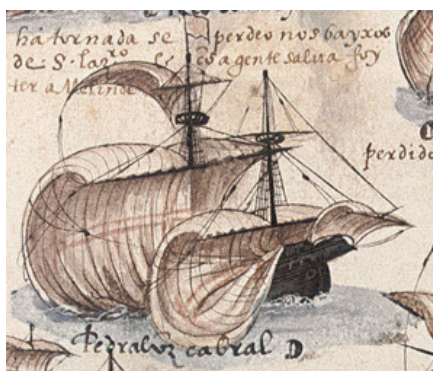 há tornada se perdeo nos bayxos
de S. lazro e a gente salva foy
ter a Melinde
perdido
Pedralvz cabral D